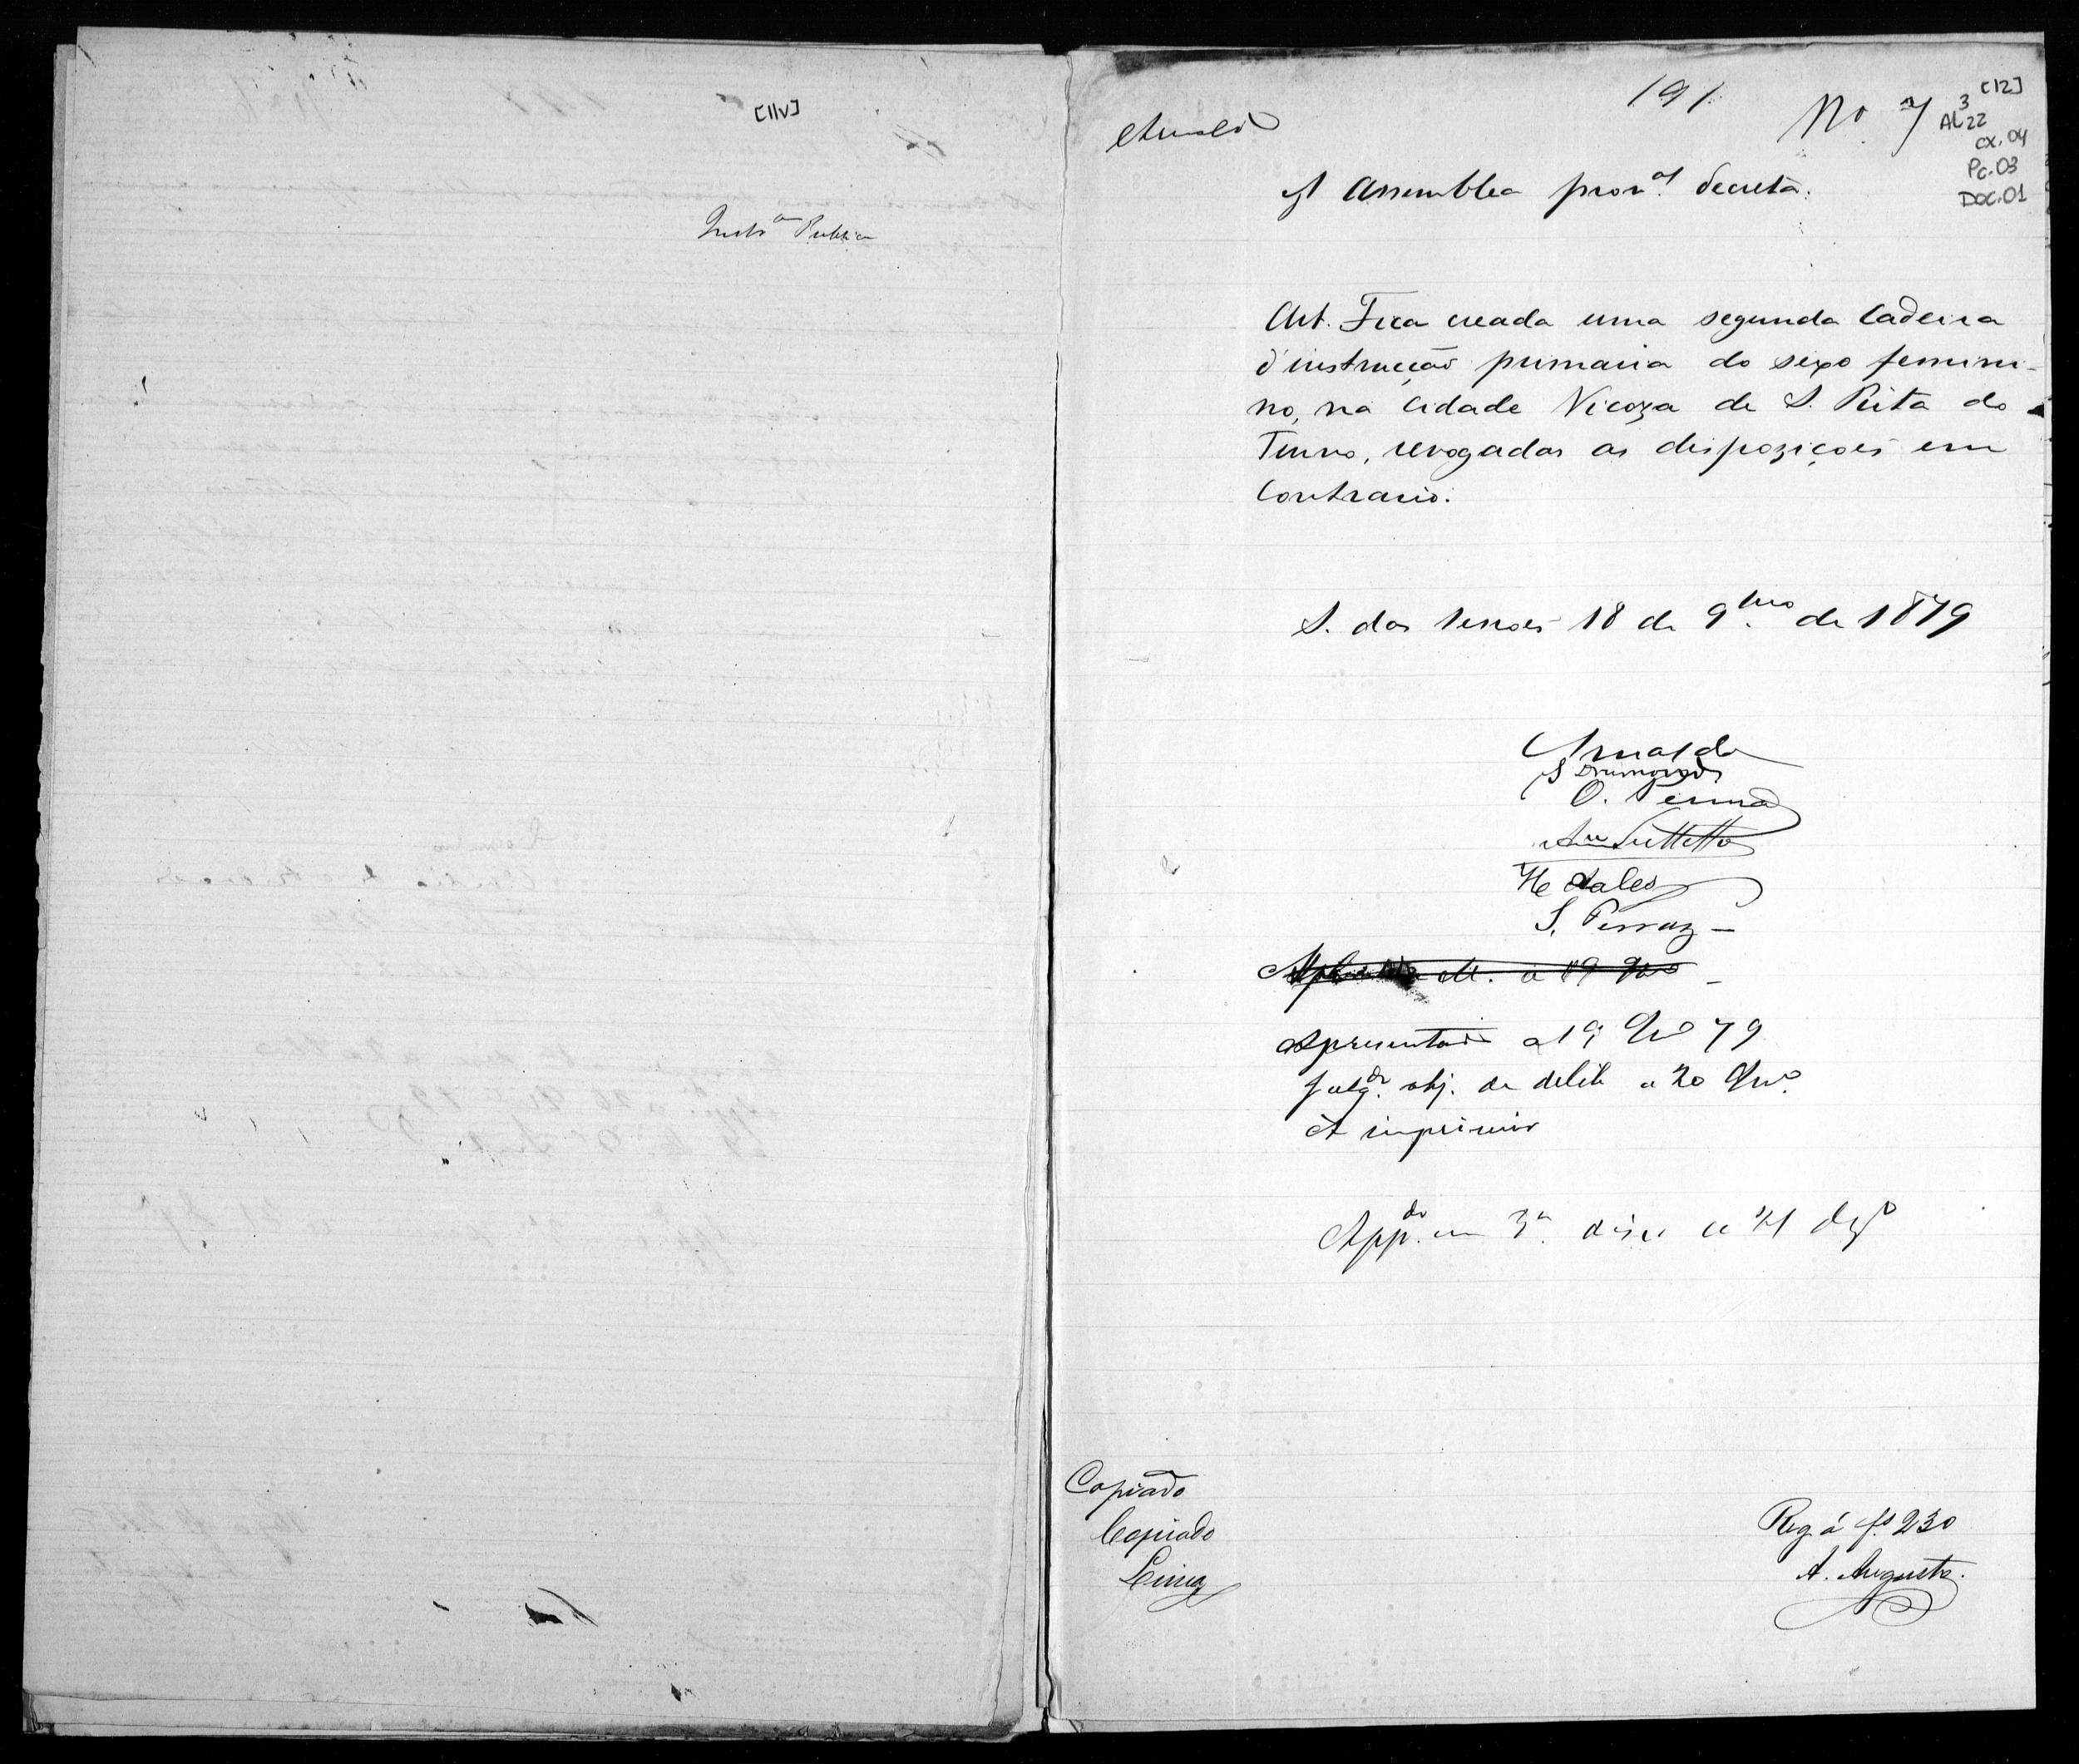 [11v]
Instr.am Publica
191
No. 7
[12]
3
AL 22
cx. 04
Pc. 03
DOC. 01
Arnaldo
A Assemblea prov.al decreta.
Art. Fica creada uma segunda Cadeira
d'instrucção primaria do sexo femini-
no, na Cidade Viçoza de S. Rita do
Turvo, revogadas as dispoziçoes em
Contrario.
S. das sessoes 18 de 9.bro de 1879
Arnaldo
S Drumond
O. Penna
H Salles
S. Ferraz
Apresentado a 19 9bro 79
Julg.do obj. de delib a 20 9bro
A imprimir
App.do em 3a. disc. a 11 dezo
Copiado
Copiado
Lima
Reg á fs 230
A. Augusto.